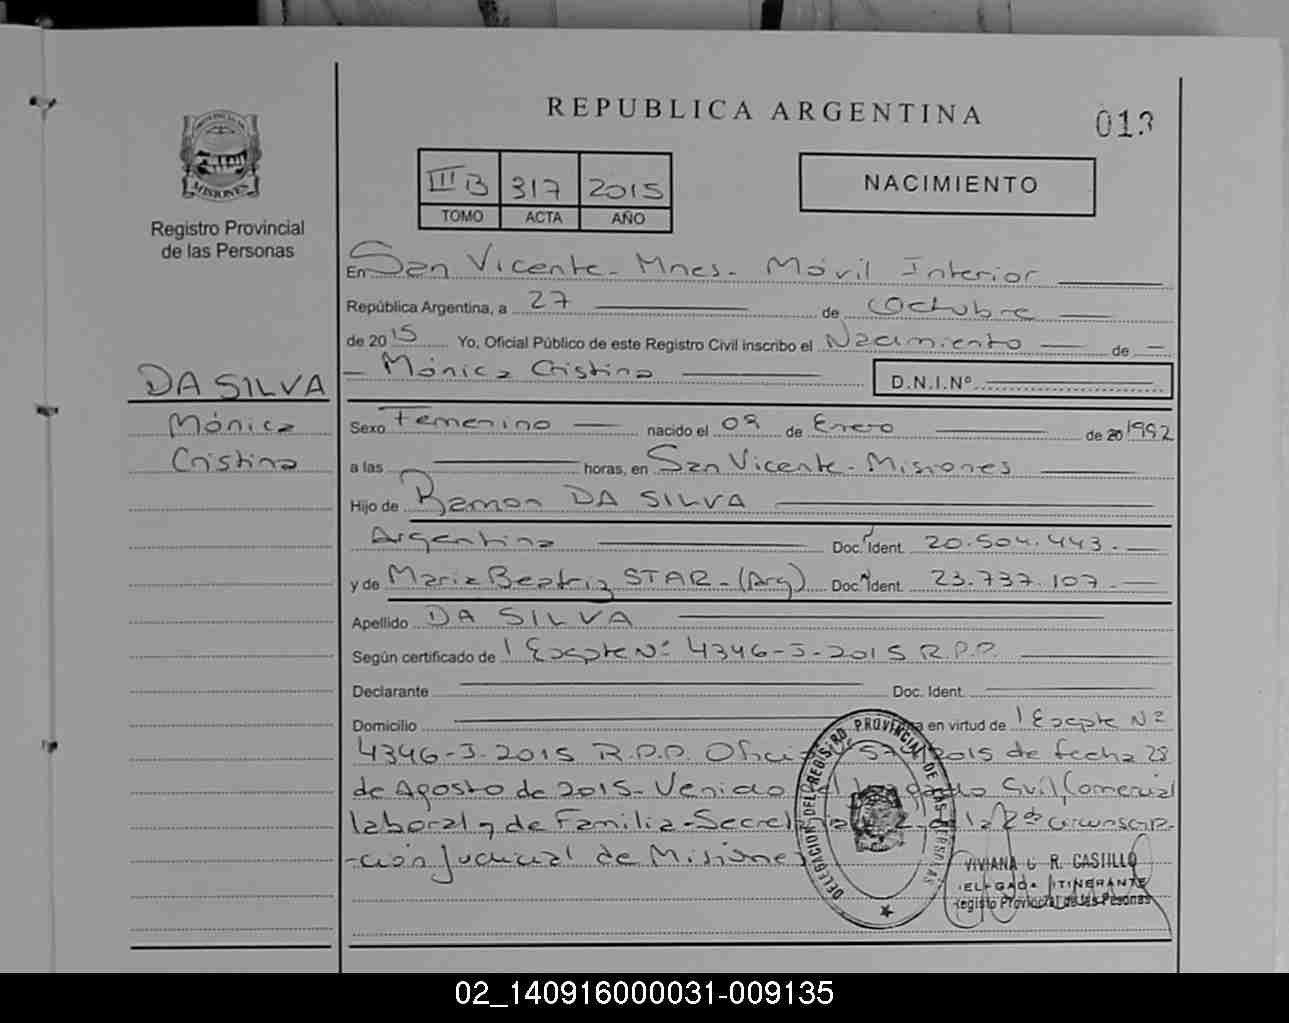 REPUBLICA ARGENTINA
013
PROVINCIA DE
MISIONES
Registro Provincial
de las Personas
III B 317 2015
TOMO ACTA AÑO
NACIMIENTO
En San Vicente - Mnes - Móvil Interior
República Argentina, a 27 de Octubre
de 2015 Yo, Oficial Público de este Registro Civil inscribo el Nacimiento de
Mónica Cristina D.N.I.Nº
DA SILVA
Mónica
Cristina
Sexo Femenino nacido el 09 de Enero de 20 1992
a las horas, en San Vicente - Misiones
Hijo de Ramon DA SILVA
Argentina Doc. Ident. 20.504.443.
y de Maria Beatriz STAR - (Arg) Doc. Ident. 23.737.107
Apellido DA SILVA
Según certificado de Expte Nº 4346-J-2015 R.P.P.
Declarante Doc. Ident.
Domicilio en virtud de Expte Nº
4346-J-2015 R.P.P. Oficio 2015 de fecha 28
de Agosto de 2015 - Venido Civil, Comercial
laboral y de Familia - Secretaria de la 2da circunscrip-
-ción Judicial de Misiones
DELEGACION DEL REGISTRO PROVINCIAL DE LAS PERSONAS
VIVIANA G R. CASTILLO
DELEGADA ITINERANTE
Registro Provincial de las Personas
02_140916000031-009135